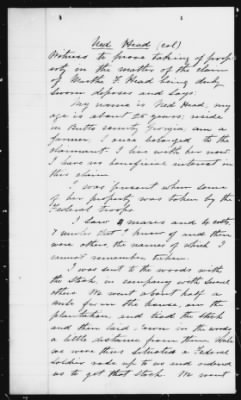 Ned Head (col)
Witness to prove taking of prop-
erty in the matter of the claim
of Martha F. Head being duly
sworn deposes and says
My name is Ned Head, my
age is about 28 years, reside
in Butts county Georgia, am a
farmer. I once belonged to the
claimant. I live with her now
I have no beneficial interest in
this claim
I was present when some
of her property was taken by the
Federal troops.
I saw 2 mares and 4 colts,
7 mules that I know of and there
were others, the names of which I
cannot remember taken.
I was sent to the woods with
the stock, in company with several
others. We went about half a
mile from the house, on the
plantation, and tied the stock
and then laid down in the woods
a little distance from them. While
we were thus situated a Federal
soldier rode up to us and ordered
us to get that stock. We went